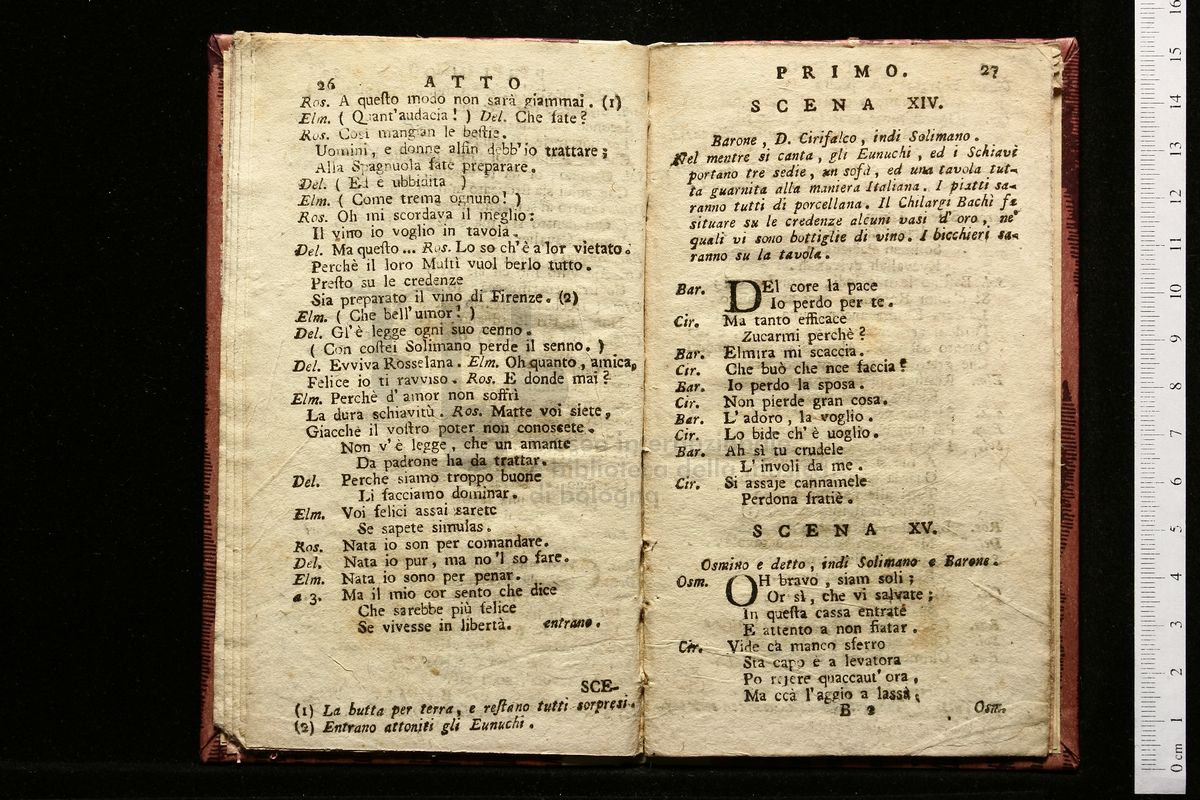 26 ATTO
Ros. A queſto modo non sarà giammai. (1)
Elm. ( Quant'audacia! ) Del. Che fate?
Ros. Così mangian le beſtie.
Uomini, e donne alfin debb'io trattare;
Alla Spagnuola fate preparare.
Del. ( Ed è ubbidita )
Elm. ( Come trema ognuno! )
Ros. Oh mi scordava il meglio:
Il vino io voglio in tavola.
Del. Ma queſto... Ros. Lo so ch'è a lor vietato.
Perchè il loro Muftì vuol berlo tutto.
Preſto su le credenze
Sia preparato il vino di Firenze. (2)
Elm. ( Che bell'umor! )
Del. Gl'è legge ogni suo cenno.
( Con coſtei Solimano perde il senno. )
Del. Evviva Rosselana. Elm. Oh quanto, amica,
Felice io ti ravviso. Ros. E donde mai?
Elm. Perchè d'amor non soffrì
La dura schiavitù. Ros. Matte voi siete,
Giacchè il voſtro poter non conoscete.
Non v'è legge, che un amante
Da padrone ha da trattar.
Del. Perche siamo troppo buone
Li facciamo dominar.
Elm. Voi felici assai sarete
Se sapete simulas.
Ros. Nata io son per comandare.
Del. Nata io pur, ma no'l so fare.
Elm. Nata io sono per penar.
a 3. Ma il mio cor sento che dice
Che sarebbe più felice
Se vivesse in libertà. entrano.
SCE-
(1) La butta per terra, e reſtano tutti sorpresi.
(2) Entrano attoniti gli Eunuchi.
PRIMO. 27
SCENA XIV.
Barone, D. Cirifalco, indi Solimano.
Nel mentre si canta, gli Eunuchi, ed i Schiavi
portano tre sedie, un sofà, ed una tavola tut-
ta guarnita alla maniera Italiana. I piatti sa-
ranno tutti di porcellana. Il Chilargi Bachì fa
situare su le credenze alcuni vasi d'oro, ne'
quali vi sono bottiglie di vino. I bicchieri sa-
ranno su la tavola.
Bar. DEl core la pace
Io perdo per te.
Cir. Ma tanto efficace
Zucarmi perchè?
Bar. Elmira mi scaccia.
Cir. Che buò che nce faccia?
Bar. Io perdo la sposa.
Cir. Non pierde gran cosa.
Bar. L'adoro, la voglio.
Cir. Lo bide ch'è uoglio.
Bar. Ah sì tu crudele
L'involi da me.
Cir. Si assaje cannamele
Perdona fratiè.
SCENA XV.
Osmino e detto, indi Solimano e Barone.
Osm. OH bravo, siam soli;
Or sì, che vi salvate;
In queſta cassa entrate
E attento a non fiatar.
Cir. Vide cà manco sferro
Sta capo è a levatora
Po rejere quaccaut'ora,
Ma ccà l'aggio a lassà;
B 2 Osm.